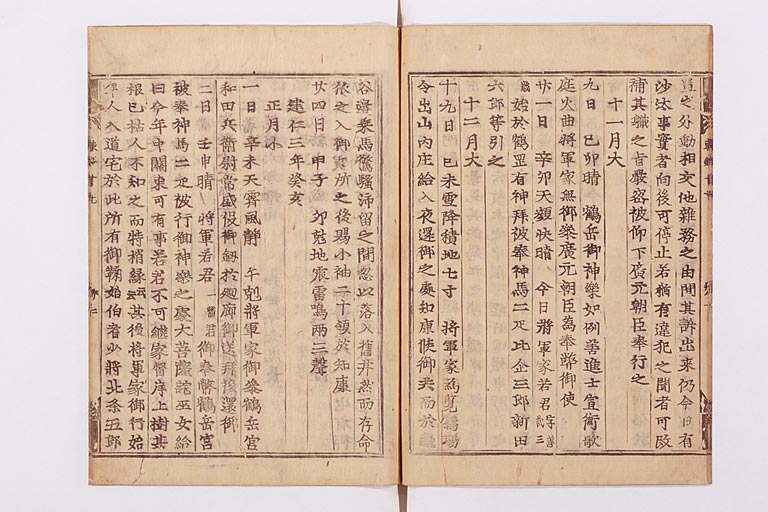 置之外動相交他雜務之由聞其訴出來仍今日有
沙汰事實者向後可停止若猶有違犯之聞者可改
補其職之旨嚴密被仰下廣元朝臣奉行之
十一月大
九日 己卯晴 鶴岳御神樂如例善進士宣衡歌
庭火曲將軍家無御參廣元朝臣為奉幣御使
廿一日 辛卯天顏快晴 今日將軍家若君字善哉三
歲始於鶴罡有神拜被奉神馬二疋比企三郎新田
六郎等引之
十二月大
十九日 己未雪降積地七寸 將軍家為覽鷹場
令出山內庄給入夜還御之處知康候御共而於
谷邊乘馬驚騷沛留之間忽以落入舊井然而存命
依之入御寢所之後賜小袖二十領於知康
廿四日 甲子 卯尅地震雷鳴兩三聲
建仁三年癸亥
正月小
一日 辛未天霽風靜 午尅將軍家御參鶴岳宮
和田兵衛尉常盛役御劔於廻廊御送拜後還御
二日 壬申晴 將軍若君一幡君御奉幣鶴岳宮
被奉神馬二疋被行御神樂之處大菩薩託巫女給
曰今年中關東可有事若君不可繼家督岸上樹其
根已枯人不知之而特梢綠云云其後將軍家御行始
人入道宅於此所有御鞠始伯耆少將北条五郎